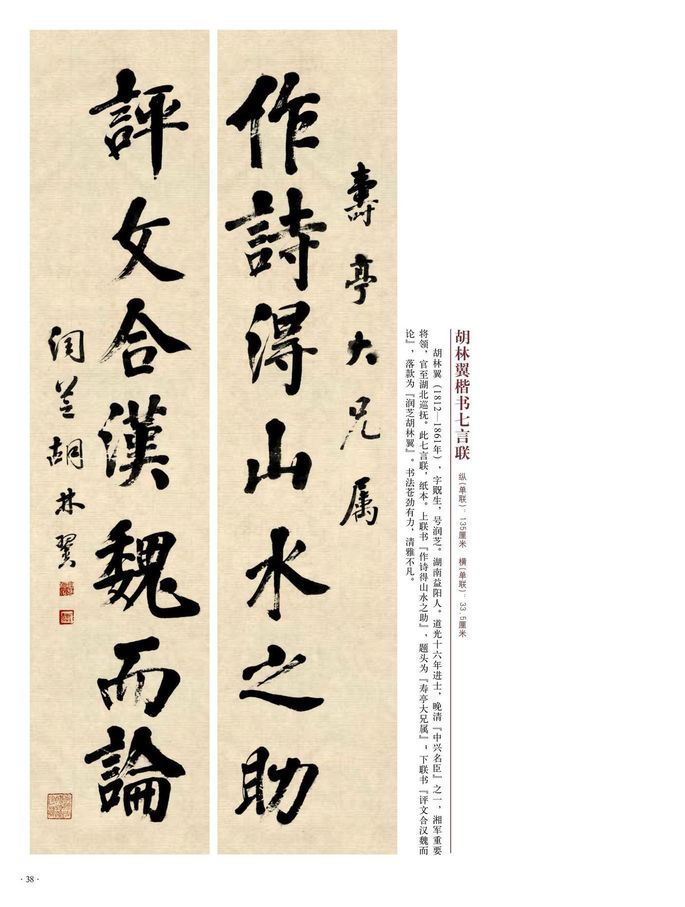 胡林翼楷书七言联
纵(单联): 135厘米 横(单联): 33.5厘米
胡林翼(1812—1861年),字贶生,号润芝。湖南益阳人。道光十六年进士,晚清『中兴名臣』之一,湘军重要
将领,官至湖北巡抚。此七言联,纸本。上联书『作诗得山水之助』,题头为『寿亭大兄属』;下联书『评文合汉魏而
论』,落款为『润芝胡林翼』。书法苍劲有力,清雅不凡。
壽亭大兄属
作詩得山水之助
評文合漢魏而論
润芝胡林翼
·38·